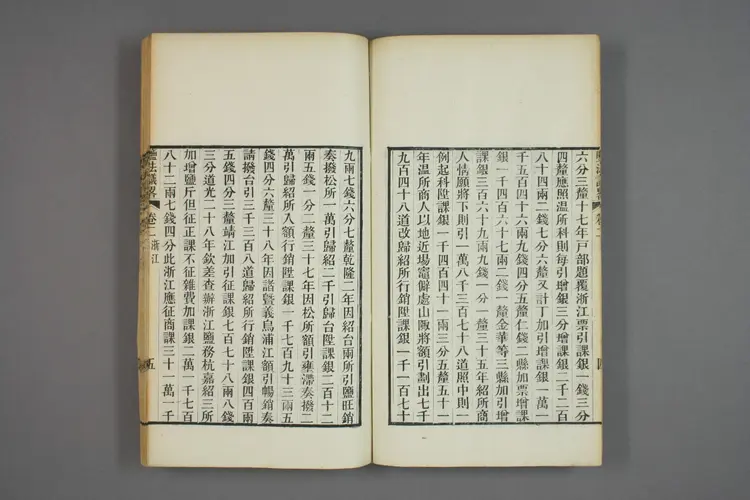 六分三釐十七年戸部題覆浙江票引課銀一錢三分
四釐應照温所科則每引增銀三分增課銀一千二百
八十四兩二錢七分六釐又計丁加引增課銀一萬一
千五十六兩九錢四分五釐仁錢二縣加票增課
銀一千四百六十七兩二錢一釐金華等三縣加引增
課銀三百六十九兩九錢一分一釐三十五年紹所商
人情願將下則引一萬八千三百七十八道照中則
例起科陞課銀一千四百四十一兩三分五釐五十一
年温所商人以地近場竈僻處山陬將額引劃出七千
九百四十八道改歸紹所行銷陞課銀一千一百七十
九兩七錢六分七釐乾隆二年因紹台兩所引鹽旺銷
奏撥松所一萬引歸紹二千引歸台陞課銀二百十二
兩五錢一分二釐三十七年因松所額引壅滯奏撥二
萬引歸紹所入額行銷陞課銀一千七百九十三兩五
錢四分六釐三十八年因諸暨義烏浦江額引暢銷奏
請撥台引三千三百八道歸紹所行銷陞課銀四百兩
五錢四分三釐靖江加引征課銀七百七十八兩八錢
三分道光二十八年欽差查辦浙江鹽務杭嘉紹三所
加增鹽斤但征正課不征雜費加課銀二萬一千七百
八十二兩七錢四分此浙江應征商課三十一萬一千
鹽法議畧 卷二 浙江 五